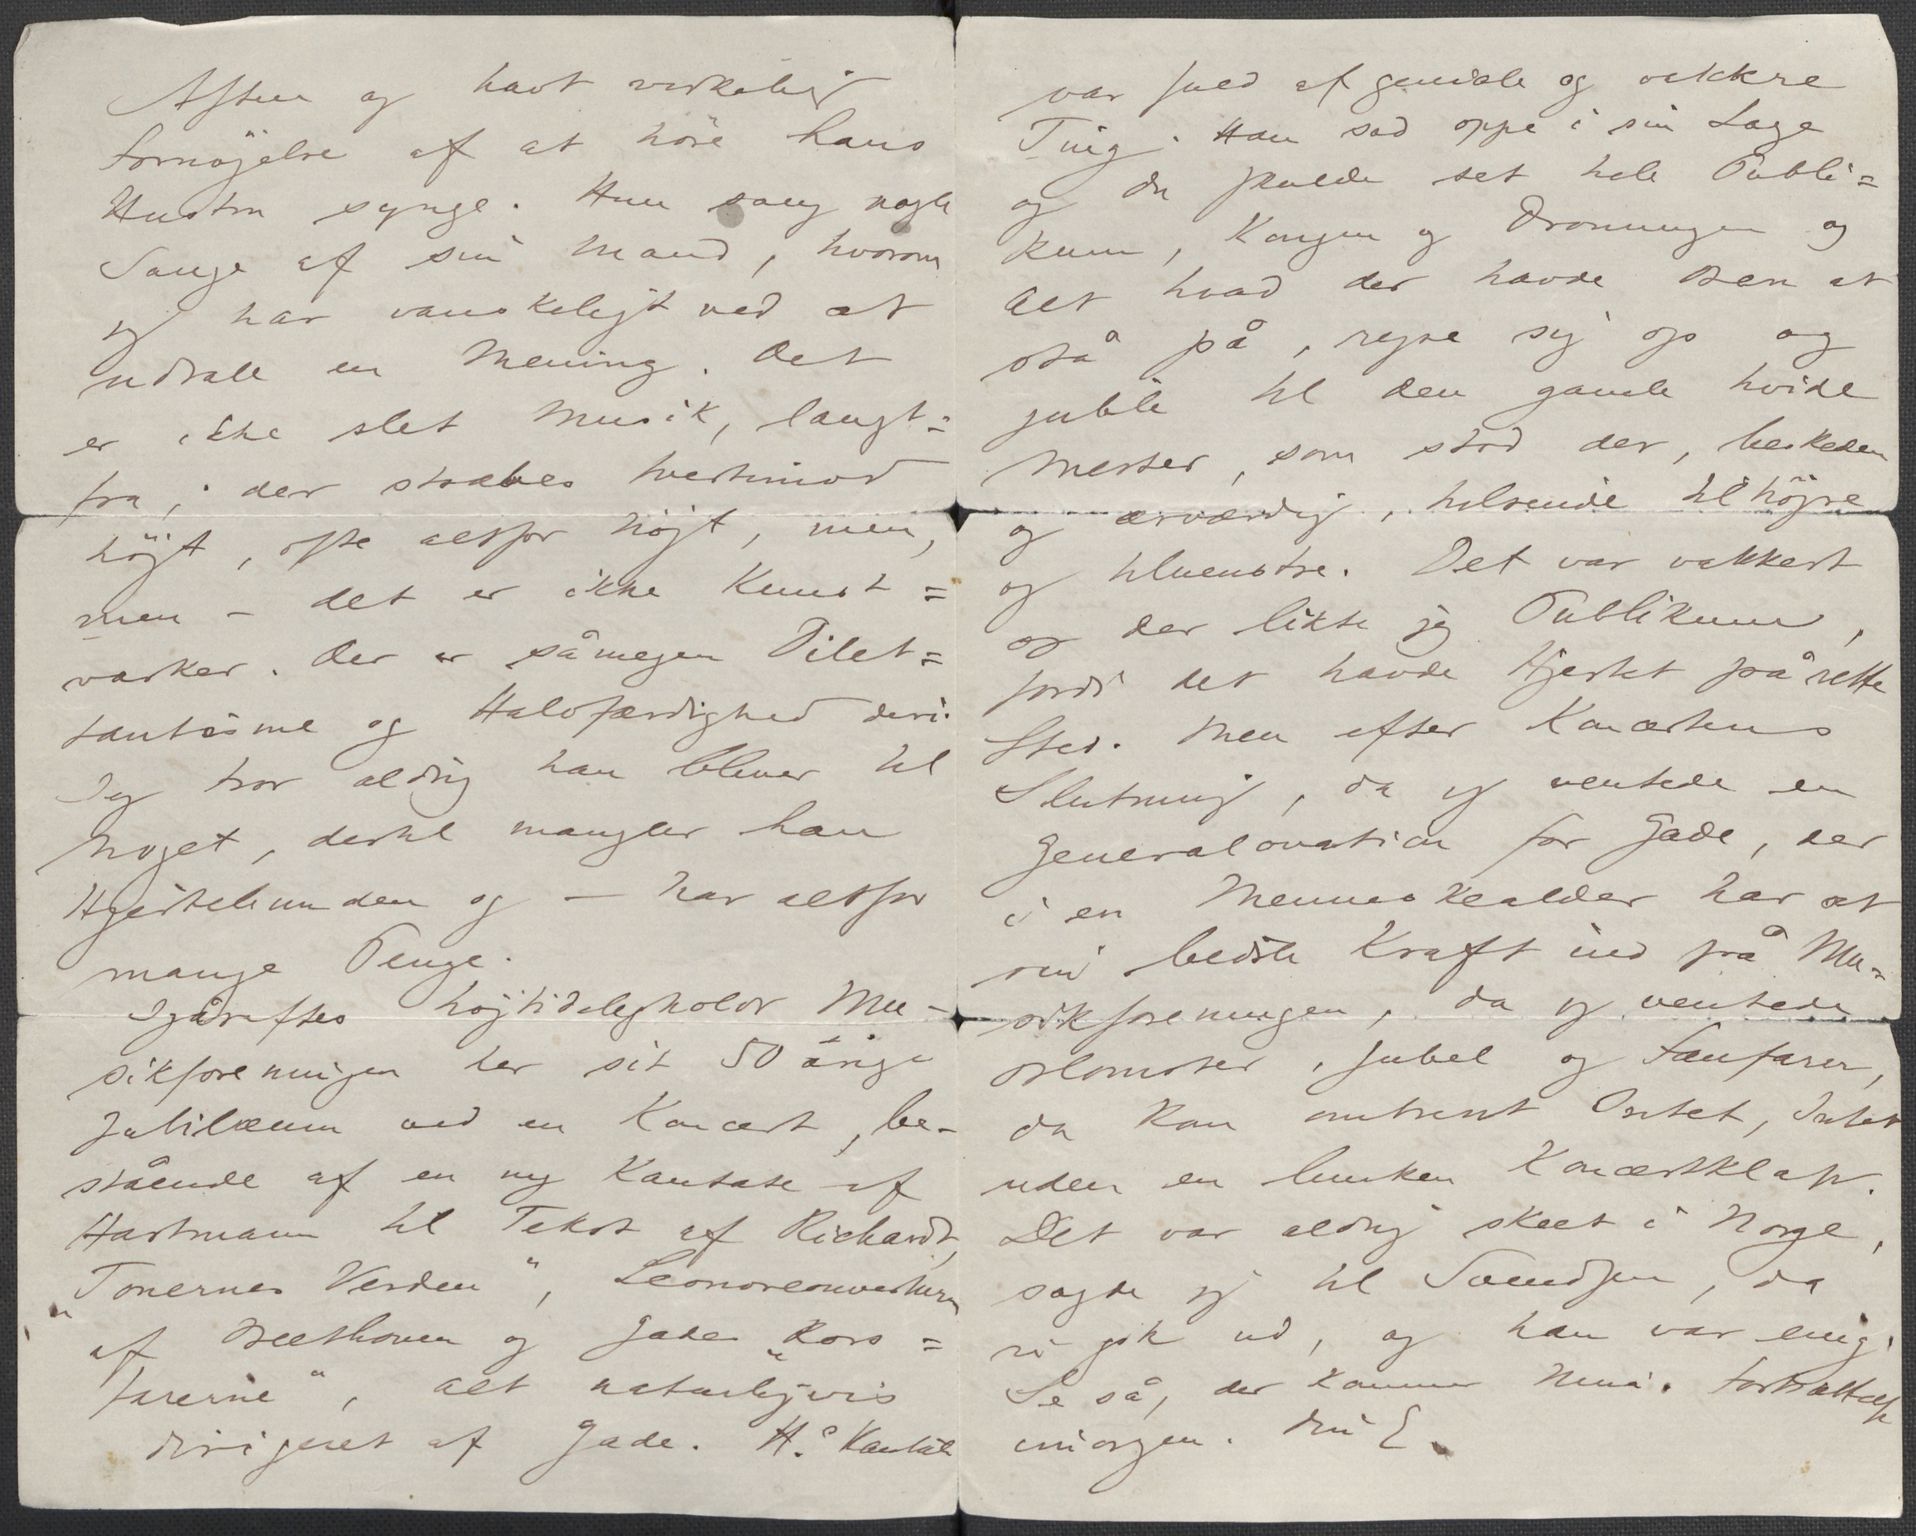 Aften og havt virkelig
Fornøjelse af at høre hans
Hustru synge. Hun sang nogle
Sange af sin Mand, hvorom
jeg har vanskeligt ved at
udtale en Mening. Det
er ikke slet Musik, langt=
fra, der stræbes tvertimod
højt, ofte altfor højt, men,
men – det er ikke Kunst=
værker. Der er såmegen Dilet=
tantisme og Halvfærdighed deri.
Jeg tror aldrig han bliver til
Noget, dertil mangler han
Hjertebunden og – har altfor
mange Penge.
Igåraftes højtideligholdt Mu-
sikforeningen her sit 50 årige
Jubilæum ved en Koncert, be-
stående af en ny Kantate af
Hartmann til Tekst af Richardt,
„Tonernes Verden“, Leonoreouverturen
af Beethoven og Gades „Kors=
farerne“, alt naturligvis
dirigeret af Gade. H.s Kantate
var fuld af geniale og vakkre
Ting. Han sad oppe i sin Loge
og du skulde set hele Publi=
kum, Kongen og Dronningen og
Alt hvad der havde Ben at
stå på, rejse sig op og
juble til den gamle hvide
Mester, som stod der, beskeden
og ærværdig, hilsende tilhøjre
og tilvenstre. Det var vakkert
og der likte jeg Publikum,
fordi det havde Hjertet på rette
Sted. Men efter Koncertens
Slutning, da jeg ventede en
Generalovation for Gade, der
i en Menneskealder har sat
sin bedste Kraft ind på Mu=
sikforeningen, da jeg ventede
Blomster, Jubel og Fanfarer,
da kom omtrent Intet, Intet
uden en lunken Koncertklap.
Det var aldrig skeet i Norge,
sagde jeg til Svendsen, da
vi gik ud, og han var enig.
Se så, der kommer Nina. Fortsættelse
imorgen. Din E.